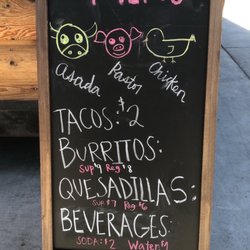 asada Pastor Chicken
TACOS: $2
BURRITOS:
Sup $9 Reg $8
QUESADILLAS:
Sup $7 Reg $6
BEVERAGES:
SODA: $2 Water